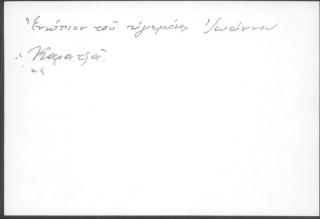 Ἐνώπιον τοῦ ἡγεμόνος Ἰωάννου
Καρατζᾶ.